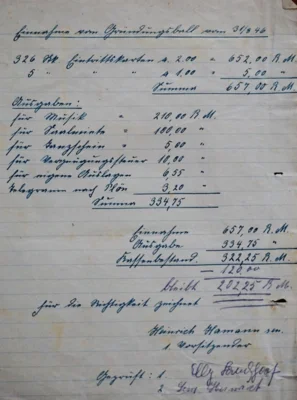 Einnahme vom Gründungsball vom 31/8 46
326 Stk Eintrittskarten a 2.00 " 652,00 R.M.
5 " " " a 1,00 " 5,00 "
Summa 657,00 R.M.
Ausgaben:
für Musik " 210,00 R.M.
für Saalmiete " 100,00 "
für Tanzschein " 5,00 "
für Vergnügungssteuer 10,00 "
für eigene Auslagen 6,55 "
Telegramm nach 3,20 "
Summa 334,75
Einnahme 657,00 R.M.
Ausgabe 334,75 "
Kassenbestand. 322,25 R.M.
120,00
bleibt 202,25 R.M.
für die Richtigkeit zeichnet
Heinrich Hamann sen.
1. Vorsitzender
Geprüft: 1.
2.